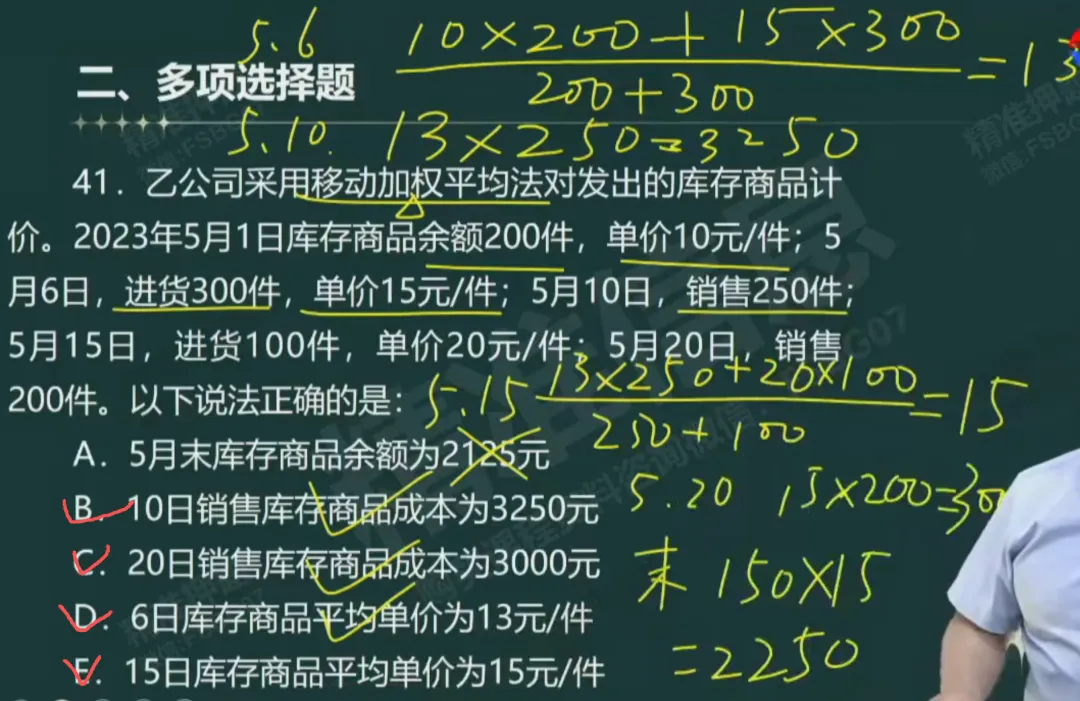 5.6 10×200+15×300
二、多项选择题 200+300 =13
5.10. 13×250=3250
41. 乙公司采用移动加权平均法对发出的库存商品计
价。2023年5月1日库存商品余额200件，单价10元/件；5
月6日，进货300件，单价15元/件；5月10日，销售250件；
5月15日，进货100件，单价20元/件；5月20日，销售
200件。以下说法正确的是：
5.15 13×250+20×100
250+100 =15
A. 5月末库存商品余额为2125元
B. 10日销售库存商品成本为3250元
5.20 15×200=300
C. 20日销售库存商品成本为3000元
末 150×15
D. 6日库存商品平均单价为13元/件
=2250
E. 15日库存商品平均单价为15元/件